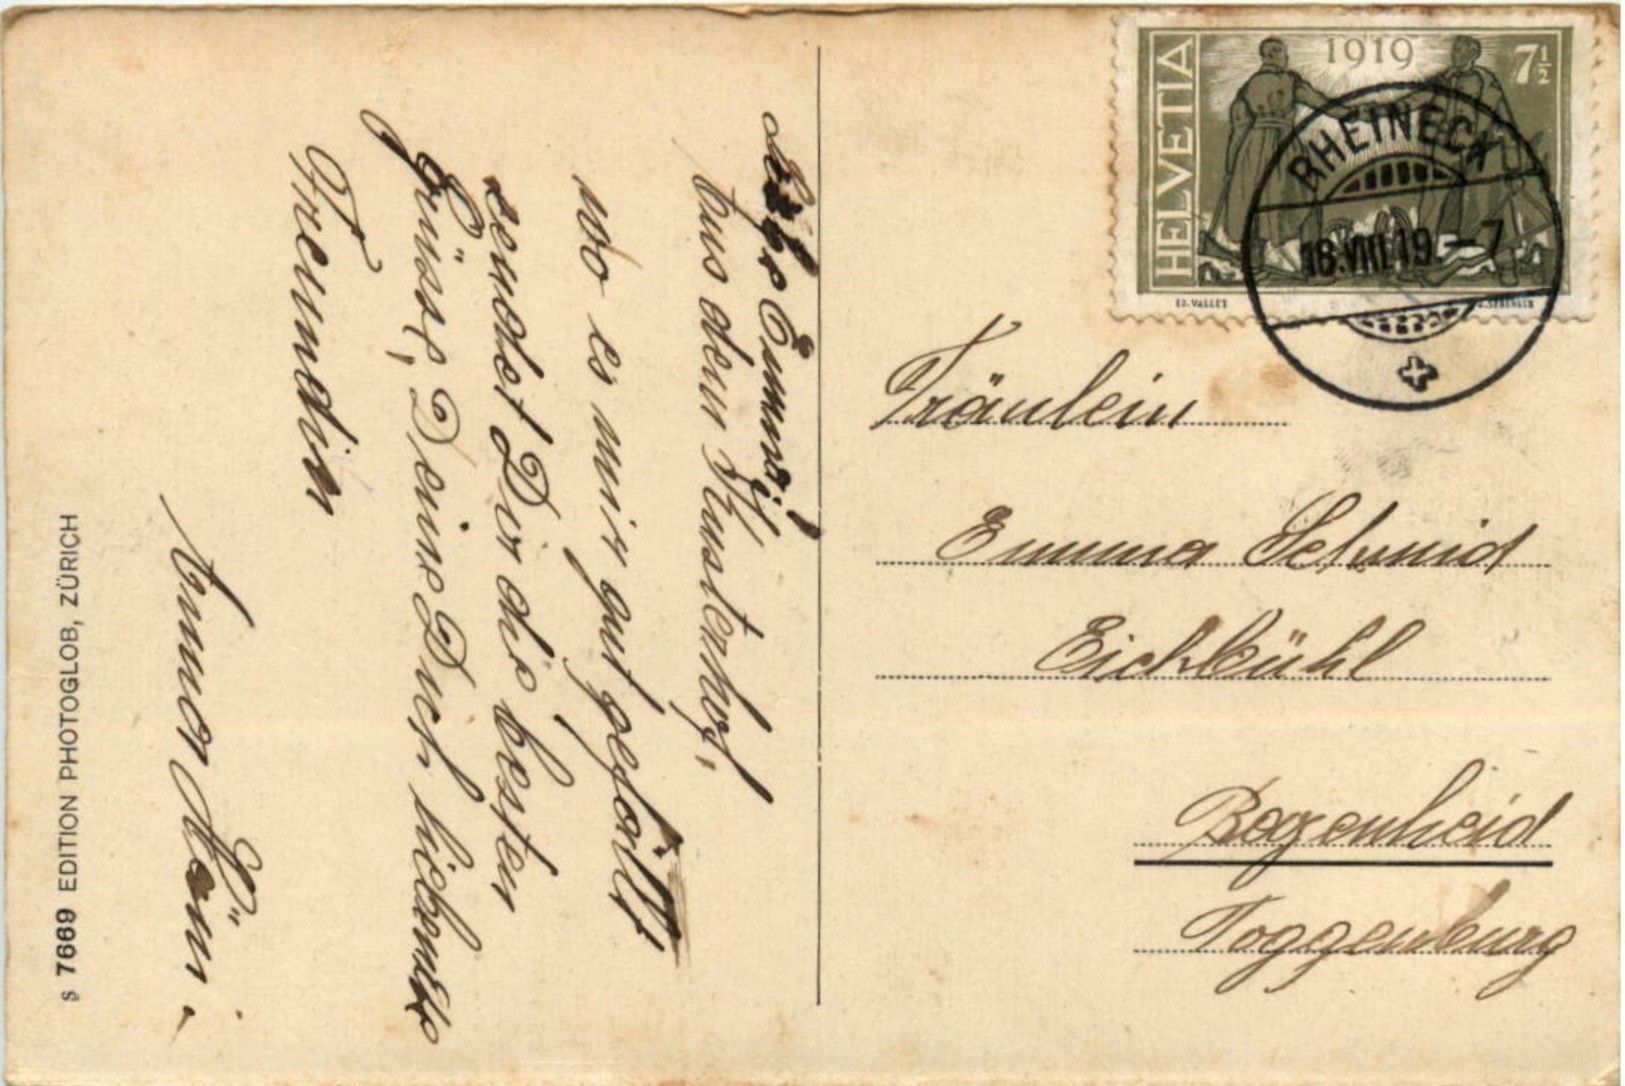 Liebe Emma!
Aus dem Küsterhof,
wo es mir gut gefällt
sendet Dir die besten
Grüsse, Deine Dich liebende
Freundin
Anna
§ 7669 EDITION PHOTOGLOB, ZÜRICH
HELVETIA
1919
7½
ED. VALLET
RHEINECK
18.VIII.19.-7
Fräulein
Emma Schmid
Eichbühl
Bazenheid
Toggenburg